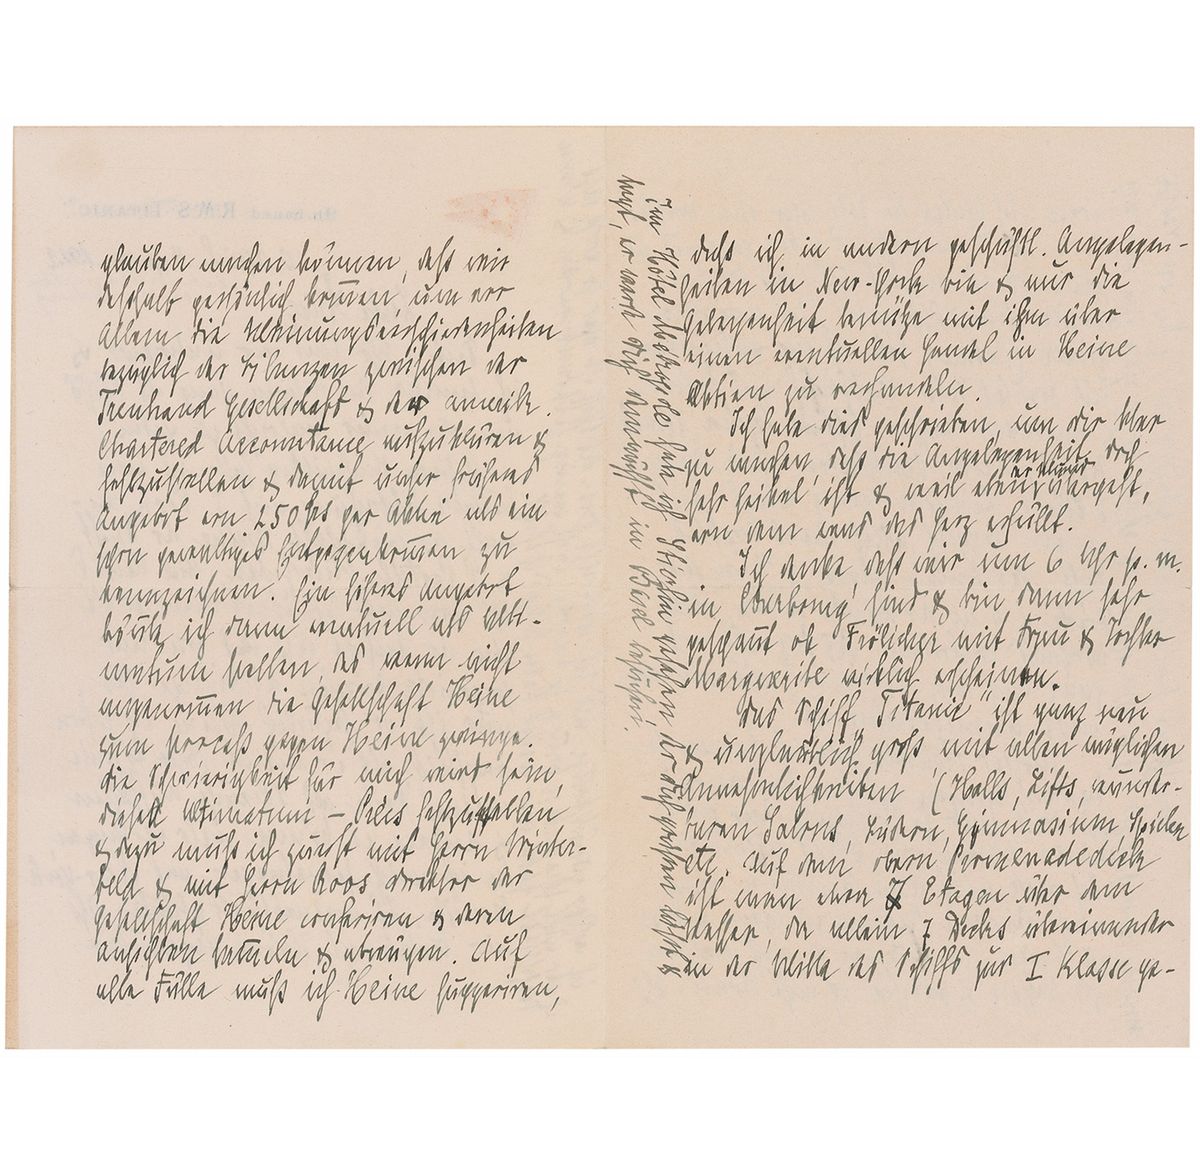 glauben machen können, daß wir
deshalb persönlich kommen, um vor
Allem die Meinungsverschiedenheiten
bezüglich der Bilanzen zwischen der
Treuhand Gesellschaft & der amerik.
Chartered Accountance aufzuklären &
festzustellen & damit unser früheres
Angebot von 250 per Aktie als ein
schon gewaltiges Entgegenkommen zu
kennzeichnen. Ein höheres Angebot
könnte ich dann eventuell als Ulti-
matum stellen, das wenn nicht
angenommen die Gesellschaft Heine
zum Process gegen Heine zwinge.
Die Schwierigkeit für mich wird sein,
dieses Ultimatum – Preis festzustellen
& dazu muß ich zuerst mit Herrn Winter-
feld & mit Herrn Roos Direktor der
Gesellschaft Heine conferiren & deren
Ansichten &. Auf
alle Fälle muß ich Heine suggeriren,
daß ich in andern geschäftl. Angelegen-
heiten in New-York bin & nur die
Gelegenheit benütze mit ihm über
einen eventuellen Handel in Heine
Aktien zu verhandeln.
Ich habe dies geschrieben, um dir klar
zu machen daß die Angelegenheit doch
sehr heikel ist & weil eben der Mund übergeht,
von dem wens das Herz erfüllt.
Ich denke daß wir um 6 Uhr p. m.
in Cherbourg sind & bin dann sehr
gespannt ob Frölicher mit Frau & Tochter
Margerite wirklich erscheinen.
Das Schiff „Titanic" ist ganz neu
& unglaublich groß mit allen möglichen
Annehmlichkeiten (Halls, Lifts, wunder-
baren Salons, Bädern, Gymnasium, Spielen
etc. Auf dem obern Promenadedeck
ist man etwa 7 Etagen über dem
Wasser, da allein 7 Decks übereinander
in der Mitte des Schiffs zur I Klasse ge-
Im Hôtel habe ich Stehlin gesehen der dich grüßen läßt &
sagt, er werde dich demnächst in Basel besuchen.
R.M.S. "TITANIC."